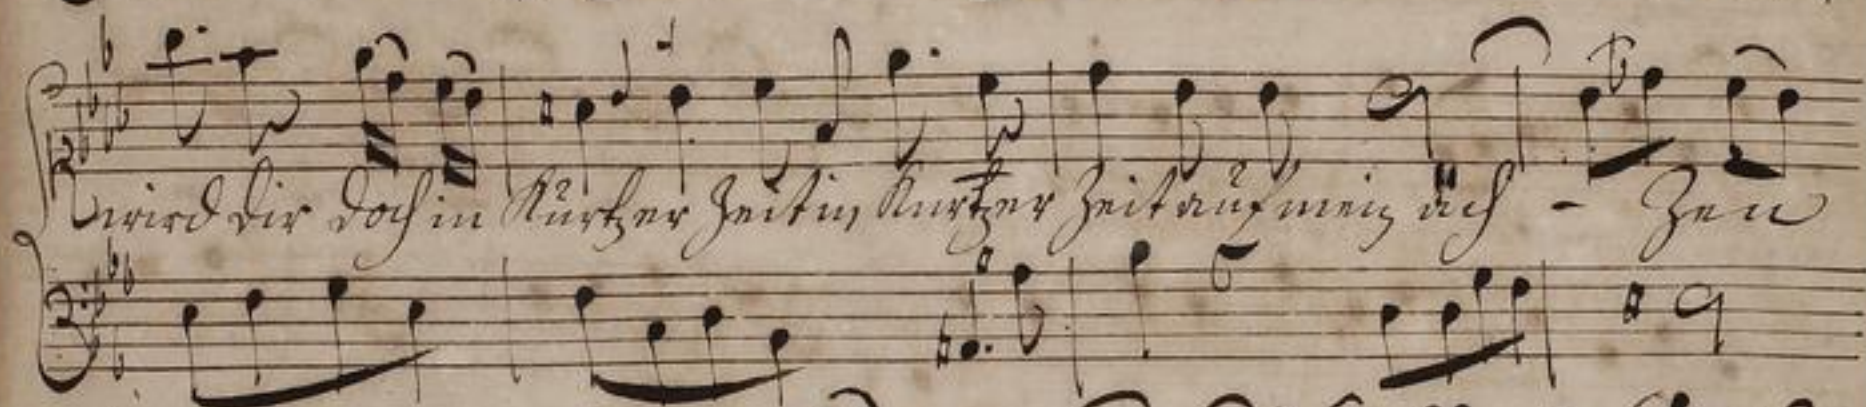 wird dir doch in Kurtzer Zeit in Kurtzer Zeit auf mein äch - Zen